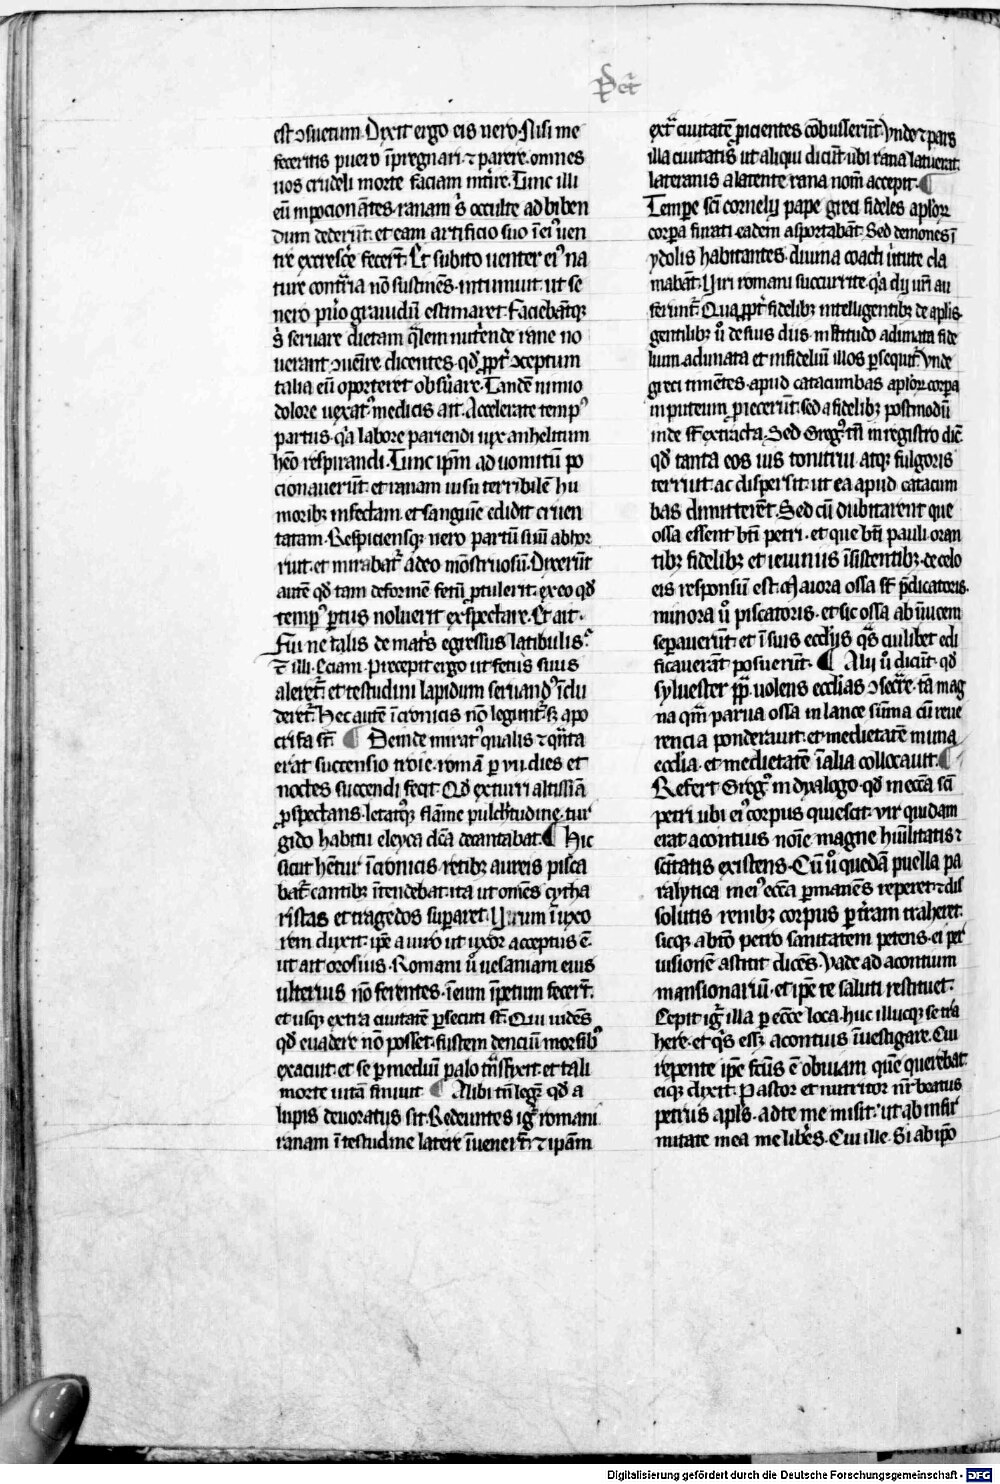 Pet̄
est ɔsuetum. Dixit ergo eis nero. Nisi me
feceritis puero īpregnari ⁊ parere. omnes
uos crudeli morte faciam int̾ire. Tunc illi
eū inpocionātes. ranam s̾ occulte ad biben
dum dederūt. et eam artificio suo ī eiꝰ uen
tre excresc̾e fecerūt. Et subito uenter eiꝰ na
ture cont̾ria nō sustinēs. intumuit. ut se
nero pu̾o grauidū estimaret. Faciebātqꝫ
s̾ seruare dietam q̄lem nut̾ende rane no
uerant ɔuenire. dicentes. qd̄ ꝓpt̾ ɔceptum
talia eū oporteret obs̾uare. Tandē nimio
dolore uexatꝰ medicis ait. Accelerate tempꝰ
partus. q̾a labore pariendi uix anhelitum
hēo respirandi. Tunc ip̄m ad uomitū po
cionauerūt. et ranam uisu terribilē. hu
moribꝫ infectam. et sanguine edidit cruen
tatam. Respiciensqꝫ nero partū suū abhor
ruit. et mirabat̾ adeo mōstruosū. Dixerūt
autē qd̄ tam deformē fetū ꝓtulerit. ex eo qd̄
tempꝰ ꝑtus noluerit exspectare. Et ait.
Fui ne talis de mat̾s egressus latibulis?
Et illi. Eciam. Precepit ergo ut fetus suus
aleret̾. et testudini lapidum seruandꝰ īclu
deret̾. Hec autē ī cronicis nō legunt̾. sꝫ apo
crifa st̄. ¶ Deinde miratꝰ qualis ⁊ q̄nta
erat succensio troie. romā ꝑ vii. dies et
noctes succendi fecit. Qd̄ ex turri altissīa
ꝓspectans. letatqꝫ flāme pulch̾tudine. tur
gido habitu eleyca dc̄a decantabat. ¶ Hic
sicut hētur ī cronicis. retibꝫ aureis pisca
bat̾. cantibꝫ ītendebat. ita ut omēs cytha
ristas et tragedos suꝑaret. Uirum ī uxo
rem duxit. ip̄e a uiro ut uxor acceptus ē.
ut ait orosius. Romani u̾o uesaniam eius
ulterius nō ferentes. ī eum īpetum fecer̄t.
et usqꝫ extra ciuitatē ꝑsecuti st̄. Qui uidēs
qd̄ euadere nō posset. fustem denciū morsibꝰ
exacuit. et se ꝑ mediū palo t̾nsfixit. et tali
morte uitā finiuit. ¶ Alibi tn̄ legit̾ qd̄ a
lupis deuoratus sit. Redeuntes ig̾ romani
ranam ī testudine latere īuener̄t. ⁊ ip̄am
ext̾ ciuitatē ꝓicientes cōbusserūt. Vnde ⁊ pars
illa ciuitatis ut aliqui dicūt ubi rana latuerat.
lateranis a latente rana nom̄ accepit. ¶
Temꝑe sc̄i cornelij pape greci fideles apl̄oꝝ
corꝑa furati. eadem asportabāt. Sed demones ī
ydolis habitantes. diuina coacti u̾tute cla
mabāt. Uiri romani succurrite. q̾a dij ur̄i au
ferunt̾. Qua ꝓpt̾ fidelibꝫ intelligentibꝫ de apl̄is.
gentilibꝫ u̾o de suis diis. m̄ltitudo adunata fide
lium. adunata et infideliū. illos ꝑsequit̾. Vnde
greci timētes. apud catacumbas apl̄oꝝ corꝑa
in puteum ꝓiecerūt. sed a fidelibꝫ postmodū
inde st̄ extracta. Sed Gregꝰ tn̄ in registro dic̄.
qd̄ tanta eos uis tonitrui atqꝫ fulgoris
terruit. ac dispersit. ut ea apud catacum
bas dimitterēt. Sed cū dubitarent que
ossa essent bt̄i petri. et que bt̄i pauli. oran
tibꝫ fidelibꝫ et ieiuniis īsistentibꝫ. de celo
eis responsū est. Maiora ossa st̄ p̄dicatoris.
minora u̾o piscatoris. et sic ossa ab īuicem
seꝑauerūt. et ī suis ecclijs q̄s cuilibet edi
ficauerāt posuerūt. ¶ Alij u̾o dicūt. qd̄
syluester pp̄. uolens ecclias ɔsecr̄re. tā mag
na qm̄ parua ossa in lance sūma cū reue
rencia ponderauit. et medietatē in una
ecclia. et medietatē ī alia collocauit. ¶
Refert Gregꝰ in dyalogo. qd̄ in ecc̄a sc̄i
petri ubi eiꝰ corpus quiescit. vir quidam
erat acontius noīe. magne hūilitatis ⁊
sc̄itatis existens. Cū u̾o quedā puella pa
ralytica in eiꝰ ecc̄a ꝑmanēs reperet. ⁊ dis
solutis renibꝫ corpus ꝑ t̾ram traheret.
sicqꝫ a bt̄o petro sanitatem petens. ei per
uisionē astitit dicēs. Vade ad acontium
mansionariū. et ip̄e te saluti restituet.
Cepit ig̾ illa ꝑ ecc̄e loca. huc illucqꝫ se tra
here. et q̾s esset acontius īuestigare. Cui
repente ip̄e fcūs ē obuiam quē querebat.
eiqꝫ dixit. Pastor et nutritor nr̄ beatus
petrus apl̄s. ad te me misit. ut ab infir
mitate mea me lib̾es. Cui ille. Si ab ip̄o
Digitalisierung gefördert durch die Deutsche Forschungsgemeinschaft - DFG